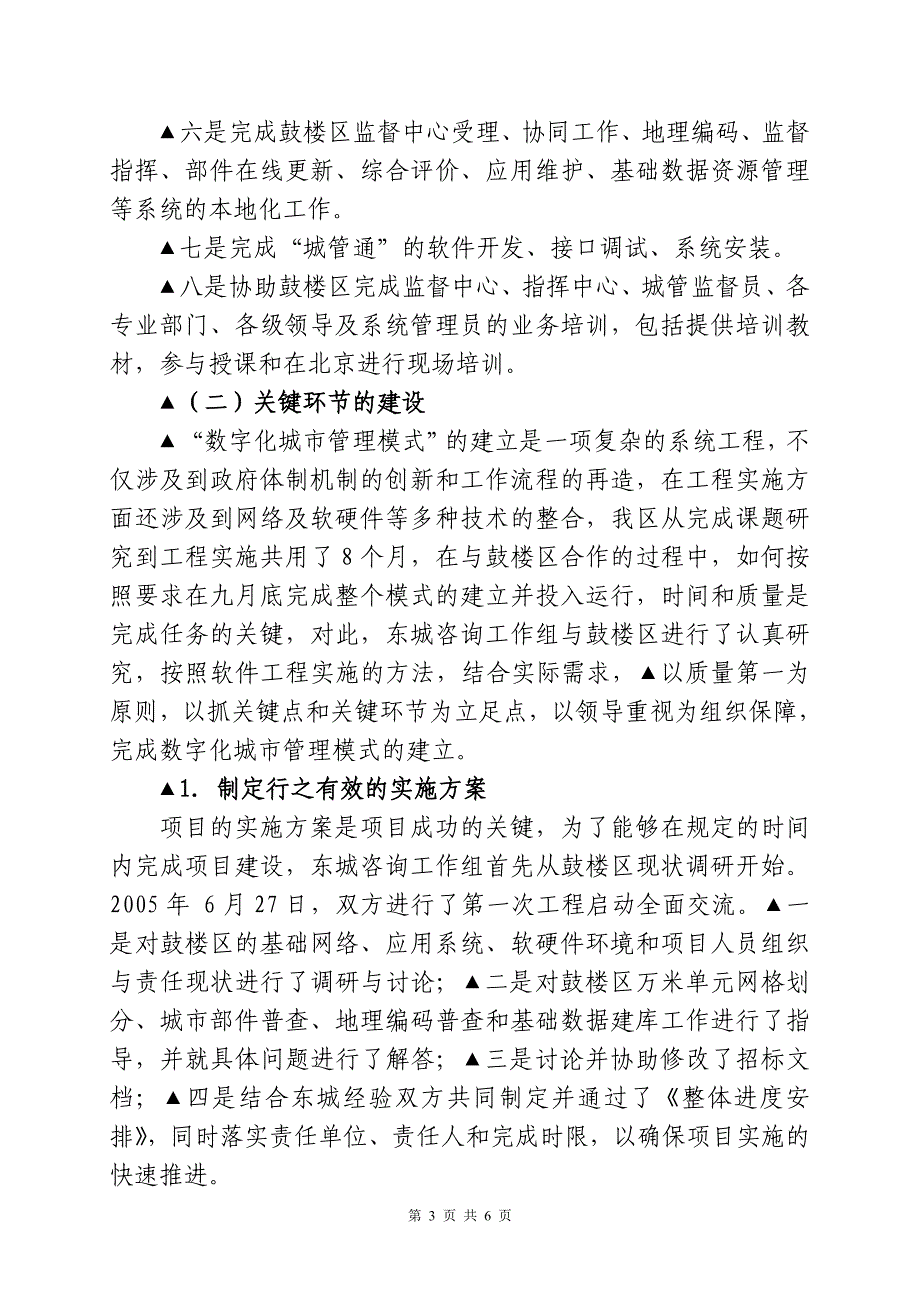 ▲六是完成鼓楼区监督中心受理、协同工作、地理编码、监督
指挥、部件在线更新、综合评价、应用维护、基础数据资源管理
等系统的本地化工作。
▲七是完成“城管通”的软件开发、接口调试、系统安装。
▲八是协助鼓楼区完成监督中心、指挥中心、城管监督员、各
专业部门、各级领导及系统管理员的业务培训，包括提供培训教
材，参与授课和在北京进行现场培训。
▲（二）关键环节的建设
▲“数字化城市管理模式”的建立是一项复杂的系统工程，不
仅涉及到政府体制机制的创新和工作流程的再造，在工程实施方
面还涉及到网络及软硬件等多种技术的整合，我区从完成课题研
究到工程实施共用了 8 个月，在与鼓楼区合作的过程中，如何按
照要求在九月底完成整个模式的建立并投入运行，时间和质量是
完成任务的关键，对此，东城咨询工作组与鼓楼区进行了认真研
究，按照软件工程实施的方法，结合实际需求，▲以质量第一为
原则，以抓关键点和关键环节为立足点，以领导重视为组织保障，
完成数字化城市管理模式的建立。
▲1. 制定行之有效的实施方案
项目的实施方案是项目成功的关键，为了能够在规定的时间
内完成项目建设，东城咨询工作组首先从鼓楼区现状调研开始。
2005 年 6 月 27 日，双方进行了第一次工程启动全面交流。▲一
是对鼓楼区的基础网络、应用系统、软硬件环境和项目人员组织
与责任现状进行了调研与讨论；▲二是对鼓楼区万米单元网格划
分、城市部件普查、地理编码普查和基础数据建库工作进行了指
导，并就具体问题进行了解答；▲三是讨论并协助修改了招标文
档；▲四是结合东城经验双方共同制定并通过了《整体进度安
排》，同时落实责任单位、责任人和完成时限，以确保项目实施的
快速推进。
第 3 页 共 6 页